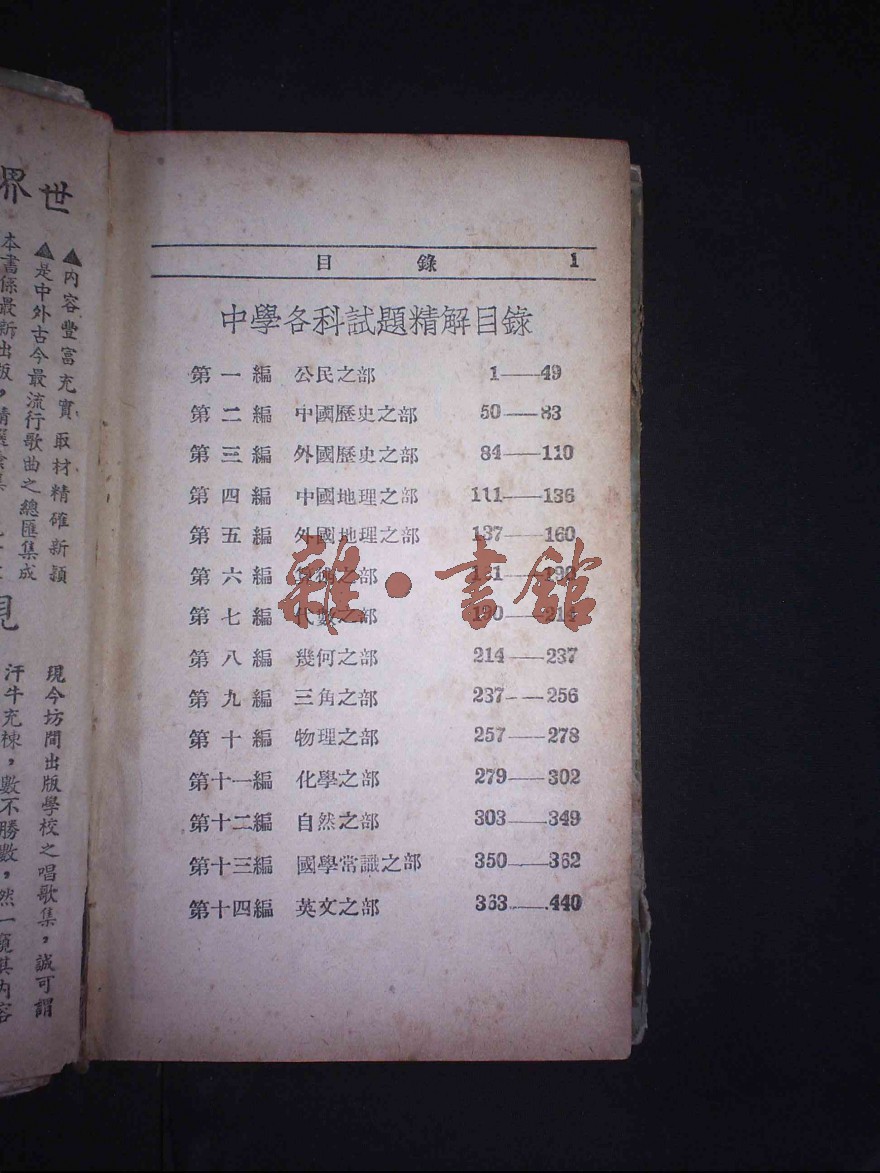 目錄 1
中學各科試題精解目錄
第一編 公民之部 1——49
第二編 中國歷史之部 50——83
第三編 外國歷史之部 84——110
第四編 中國地理之部 111——136
第五編 外國地理之部 137——160
第六編 之部
第七編 代數之部
第八編 幾何之部 214——237
第九編 三角之部 237——256
第十編 物理之部 257——278
第十一編 化學之部 279——302
第十二編 自然之部 303——349
第十三編 國學常識之部 350——362
第十四編 英文之部 363——440
雜·書館
世界
▲內容豐富充實、取材精確新穎
▲是中外古今最流行歌曲之總匯集成
本書係最新出版，精選
現今坊間出版學校之唱歌集，誠可謂
汗牛充棟，數不勝數，然一覽其內容